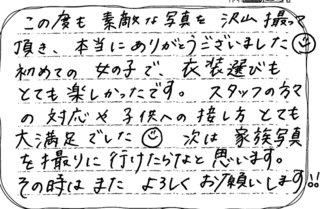 この度も 素敵な写真を 沢山 撮って
頂き、本当にありがとうございました☺
初めての 女の子で、衣装選びも
とても 楽しかったです。スタッフの方々
の 対応や 子供への 接し方 とても
大満足でした☺ 次は 家族写真
を撮りに 行けたらなと 思います。
その時は また よろしく お願いします!!